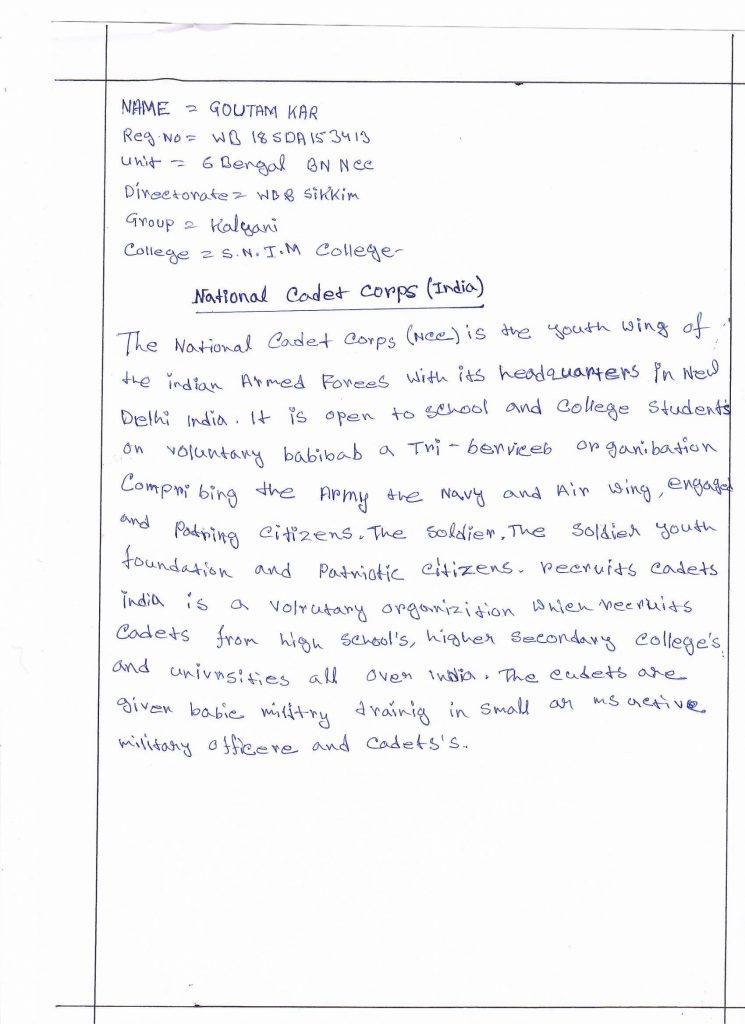 NAME = GOUTAM KAR
Reg.No = WB 18SDA153413
Unit = 6 Bengal BN NCC
Directorate = WB & Sikkim
Group = Kalyani
College = S.N.I.M College-
National Cadet Corps (India)
The National Cadet Corps (NCC) is the youth wing of
the indian Armed Forees with its headquarters in New
Delhi India. It is open to school and College Students
on voluntary babibab a Tri-bervices organibation
Compribing the Army the Navy and Air wing, engaged
and Patring Citizens. The Soldier. The Soldier youth
foundation and Patriotic citizens. recruits cadets
india is a volrutary organizition which recruits
Cadets from high school's, higher Secondary college's,
and univnsities all over india. The cudets are
given babic militry trainig in small ar ms active
military officere and Cadets's.